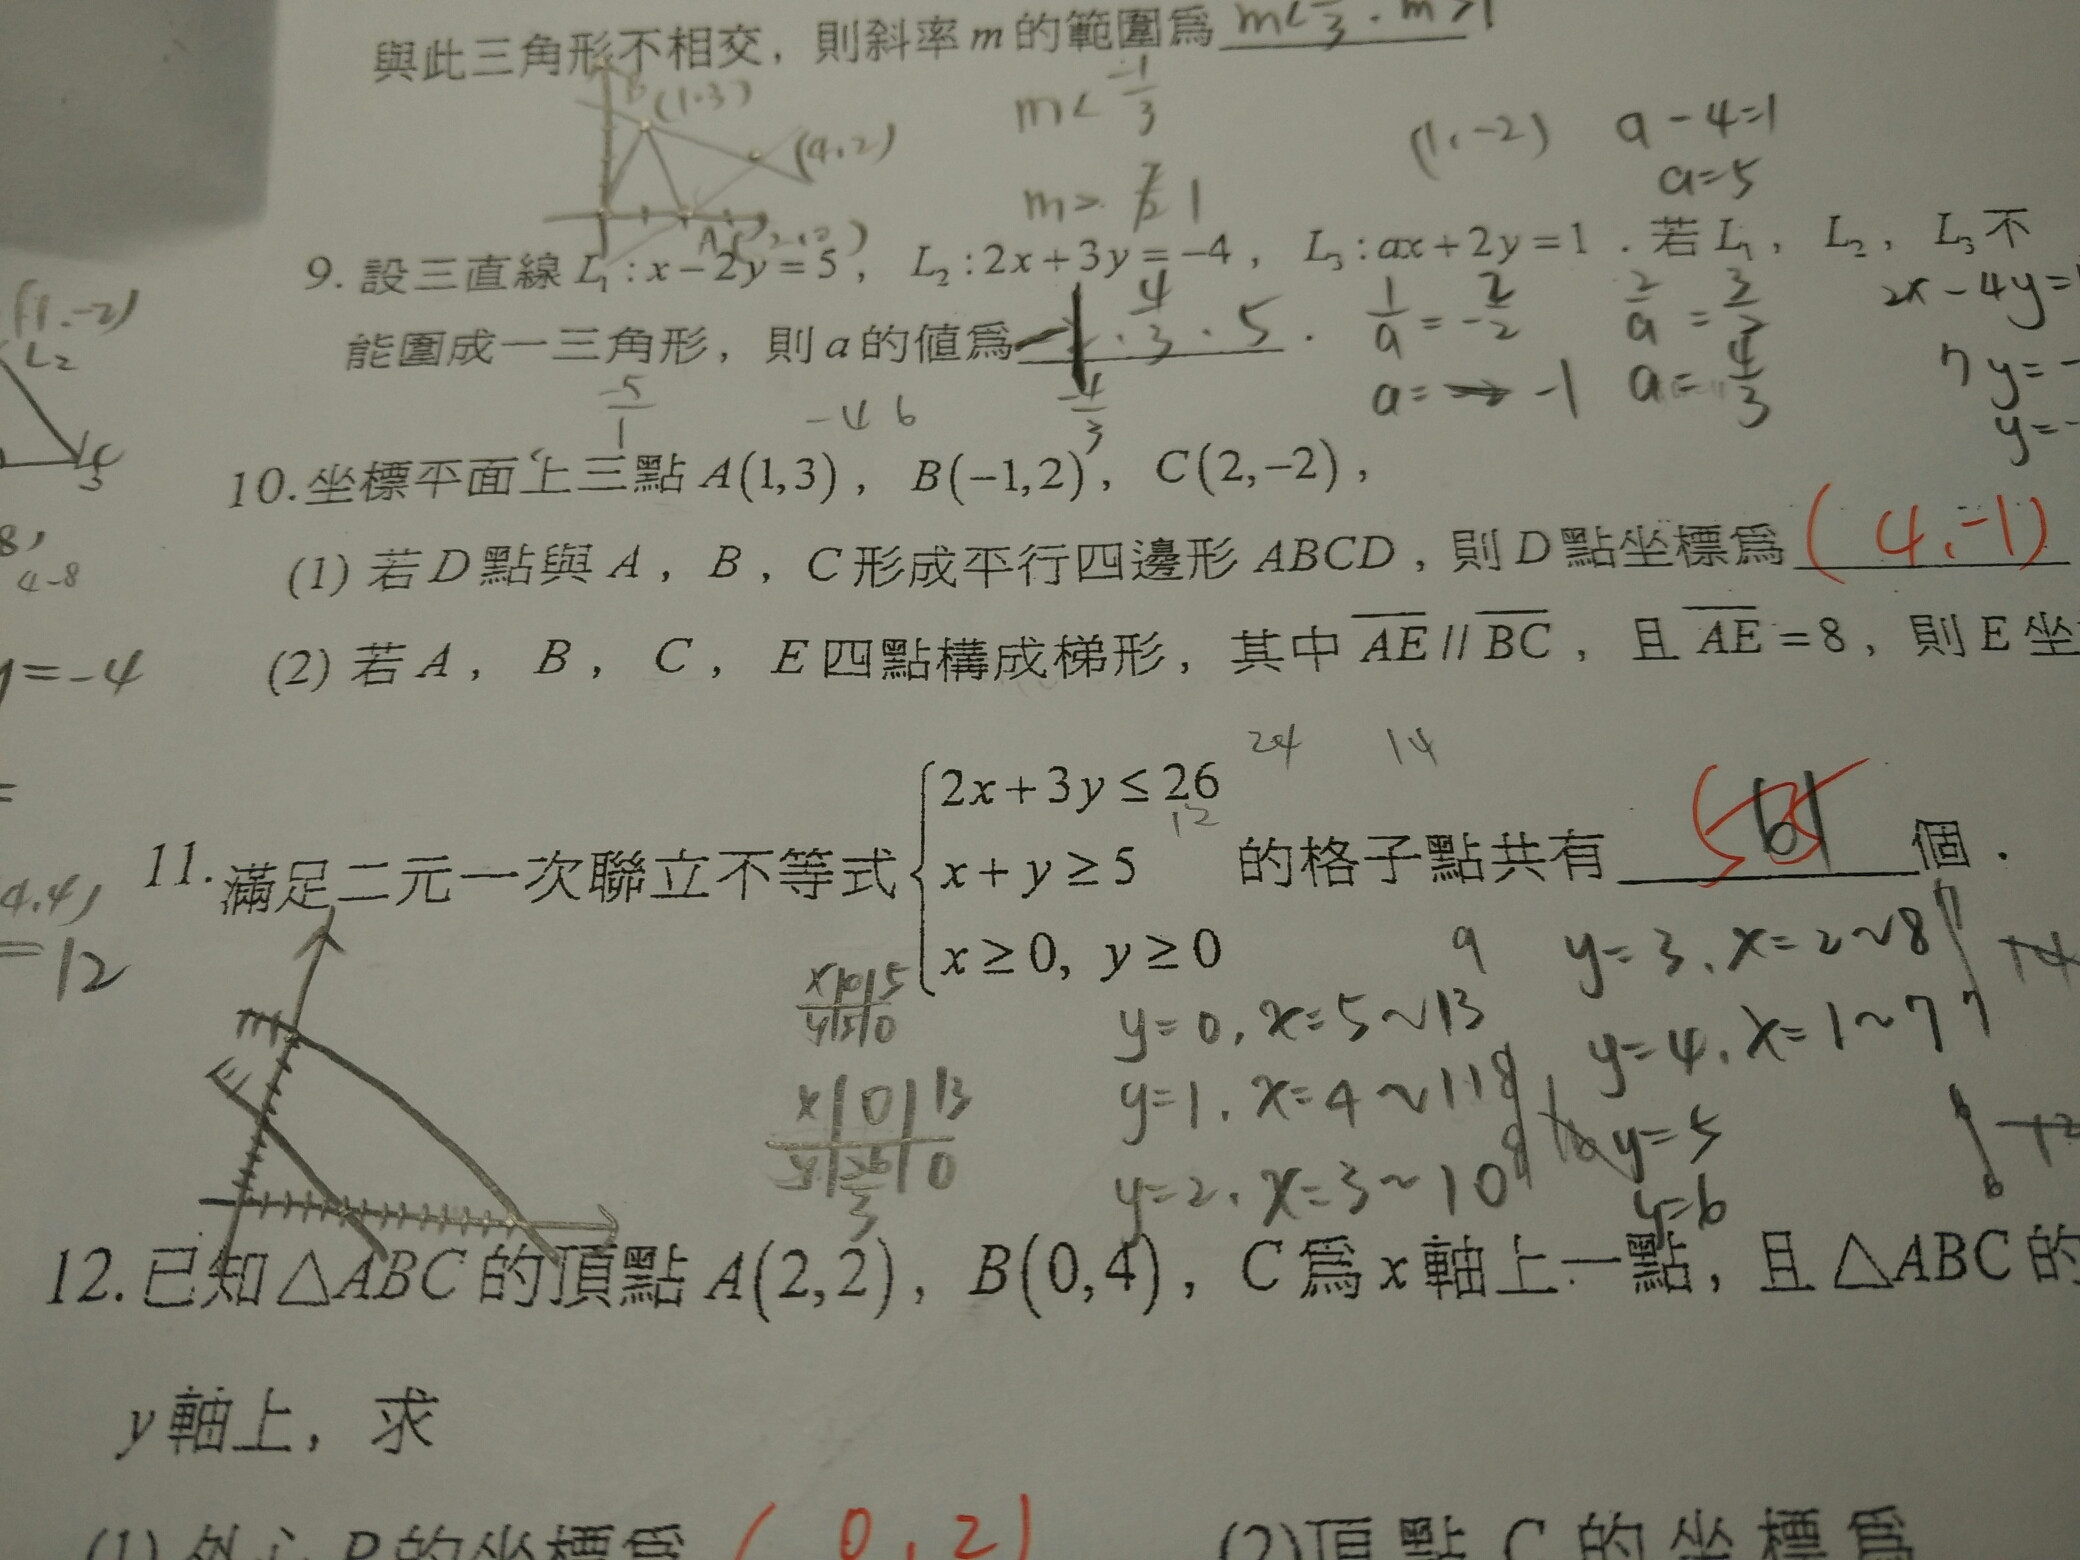 與此三角形不相交，則斜率 m 的範圍爲 m<-1/3 . m>1
B (1.3)
(4.2)
m< -1/3
(1.-2) a-4=1
m> 1 a=5
9. 設三直線 L₁ : x-2y=5， L₂ : 2x+3y=-4， L₃ : ax+2y=1 . 若 L₁， L₂， L₃ 不
(1.-2)
1/a = -2/2 2/a = 3/2 2x-4y=
L₂
能圍成一三角形，則 a 的値爲 . 4/3 . 5 .
a= -1 a= 4/3 7y=-
y=-
-5/1 -4 6 -4/3
10. 坐標平面上三點 A(1,3)， B(-1,2)， C(2,-2)，
(1) 若 D 點與 A，B，C 形成平行四邊形 ABCD，則 D 點坐標爲 (4.-1)
4-8
=-4
(2) 若 A， B， C， E 四點構成梯形，其中 AE // BC，且 AE =8，則 E 坐
24 14
2x+3y≤26
12
11. 滿足二元一次聯立不等式 x+y≥5 的格子點共有 61 個．
x≥0, y≥0
4.4)
=12
x 0 5
y 5 0
9 y=3. x=2~8 7 14
y=0. x=5~13 y=4. x=1~7 7
x 0 13
y 26/3 0
y=1. x=4~11 8 16 y=5 12
y=2. x=3~10 8 y=6
12. 已知△ABC 的頂點 A(2,2)， B(0,4)， C 爲 x 軸上一點，且 △ABC 的
y 軸上，求
(1) 外心 P 的坐標爲 (0.2) (2)頂點 C 的坐標爲